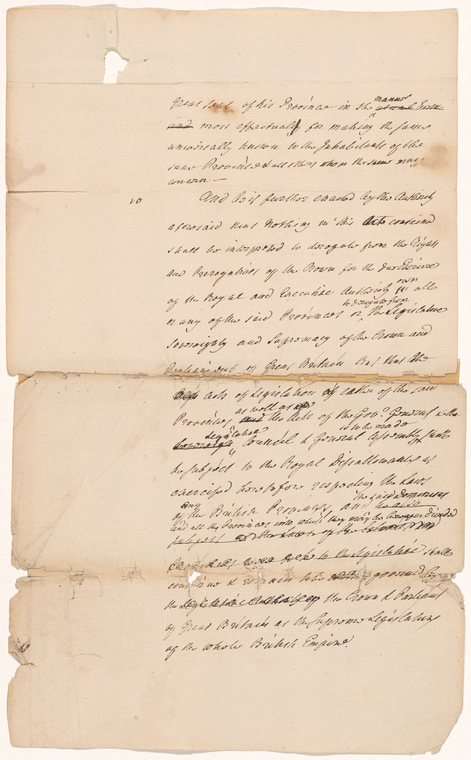 Great Seal of his Province in the manner usual Form
and most effectually for making the same
universally known to the Inhabitants of the
same Province & all others whom the same may
concern —
10 And be it further enacted by the Authority
aforesaid that Nothing in this Act contained
shall be interpreted to derogate from the Rights
and Prerogatives of the Crown for the due Exercise
of the Royal and Executive Authority over all
or any of the said Provinces or to derogate from the Legislative
Sovereignty and Supremacy of the Crown and
Parliament of Great Britain But that the
acts of Legislation of either of the said
Provinces as well as the Acts of the Govr. General & the
Legislative Council & General Assembly is to be made shall
be subject to the Royal Disallowance as
exercised heretofore respecting the Laws
of any of the British Provinces, and the said Dominions
and all the Provinces into which they may be hereafter divided
subject
to the Legislative shall
continue & remain to be governed by
the Legislative Authority of the Crown & Parliament
of Great Britain as the Supreme Legislature
of the whole British Empire.